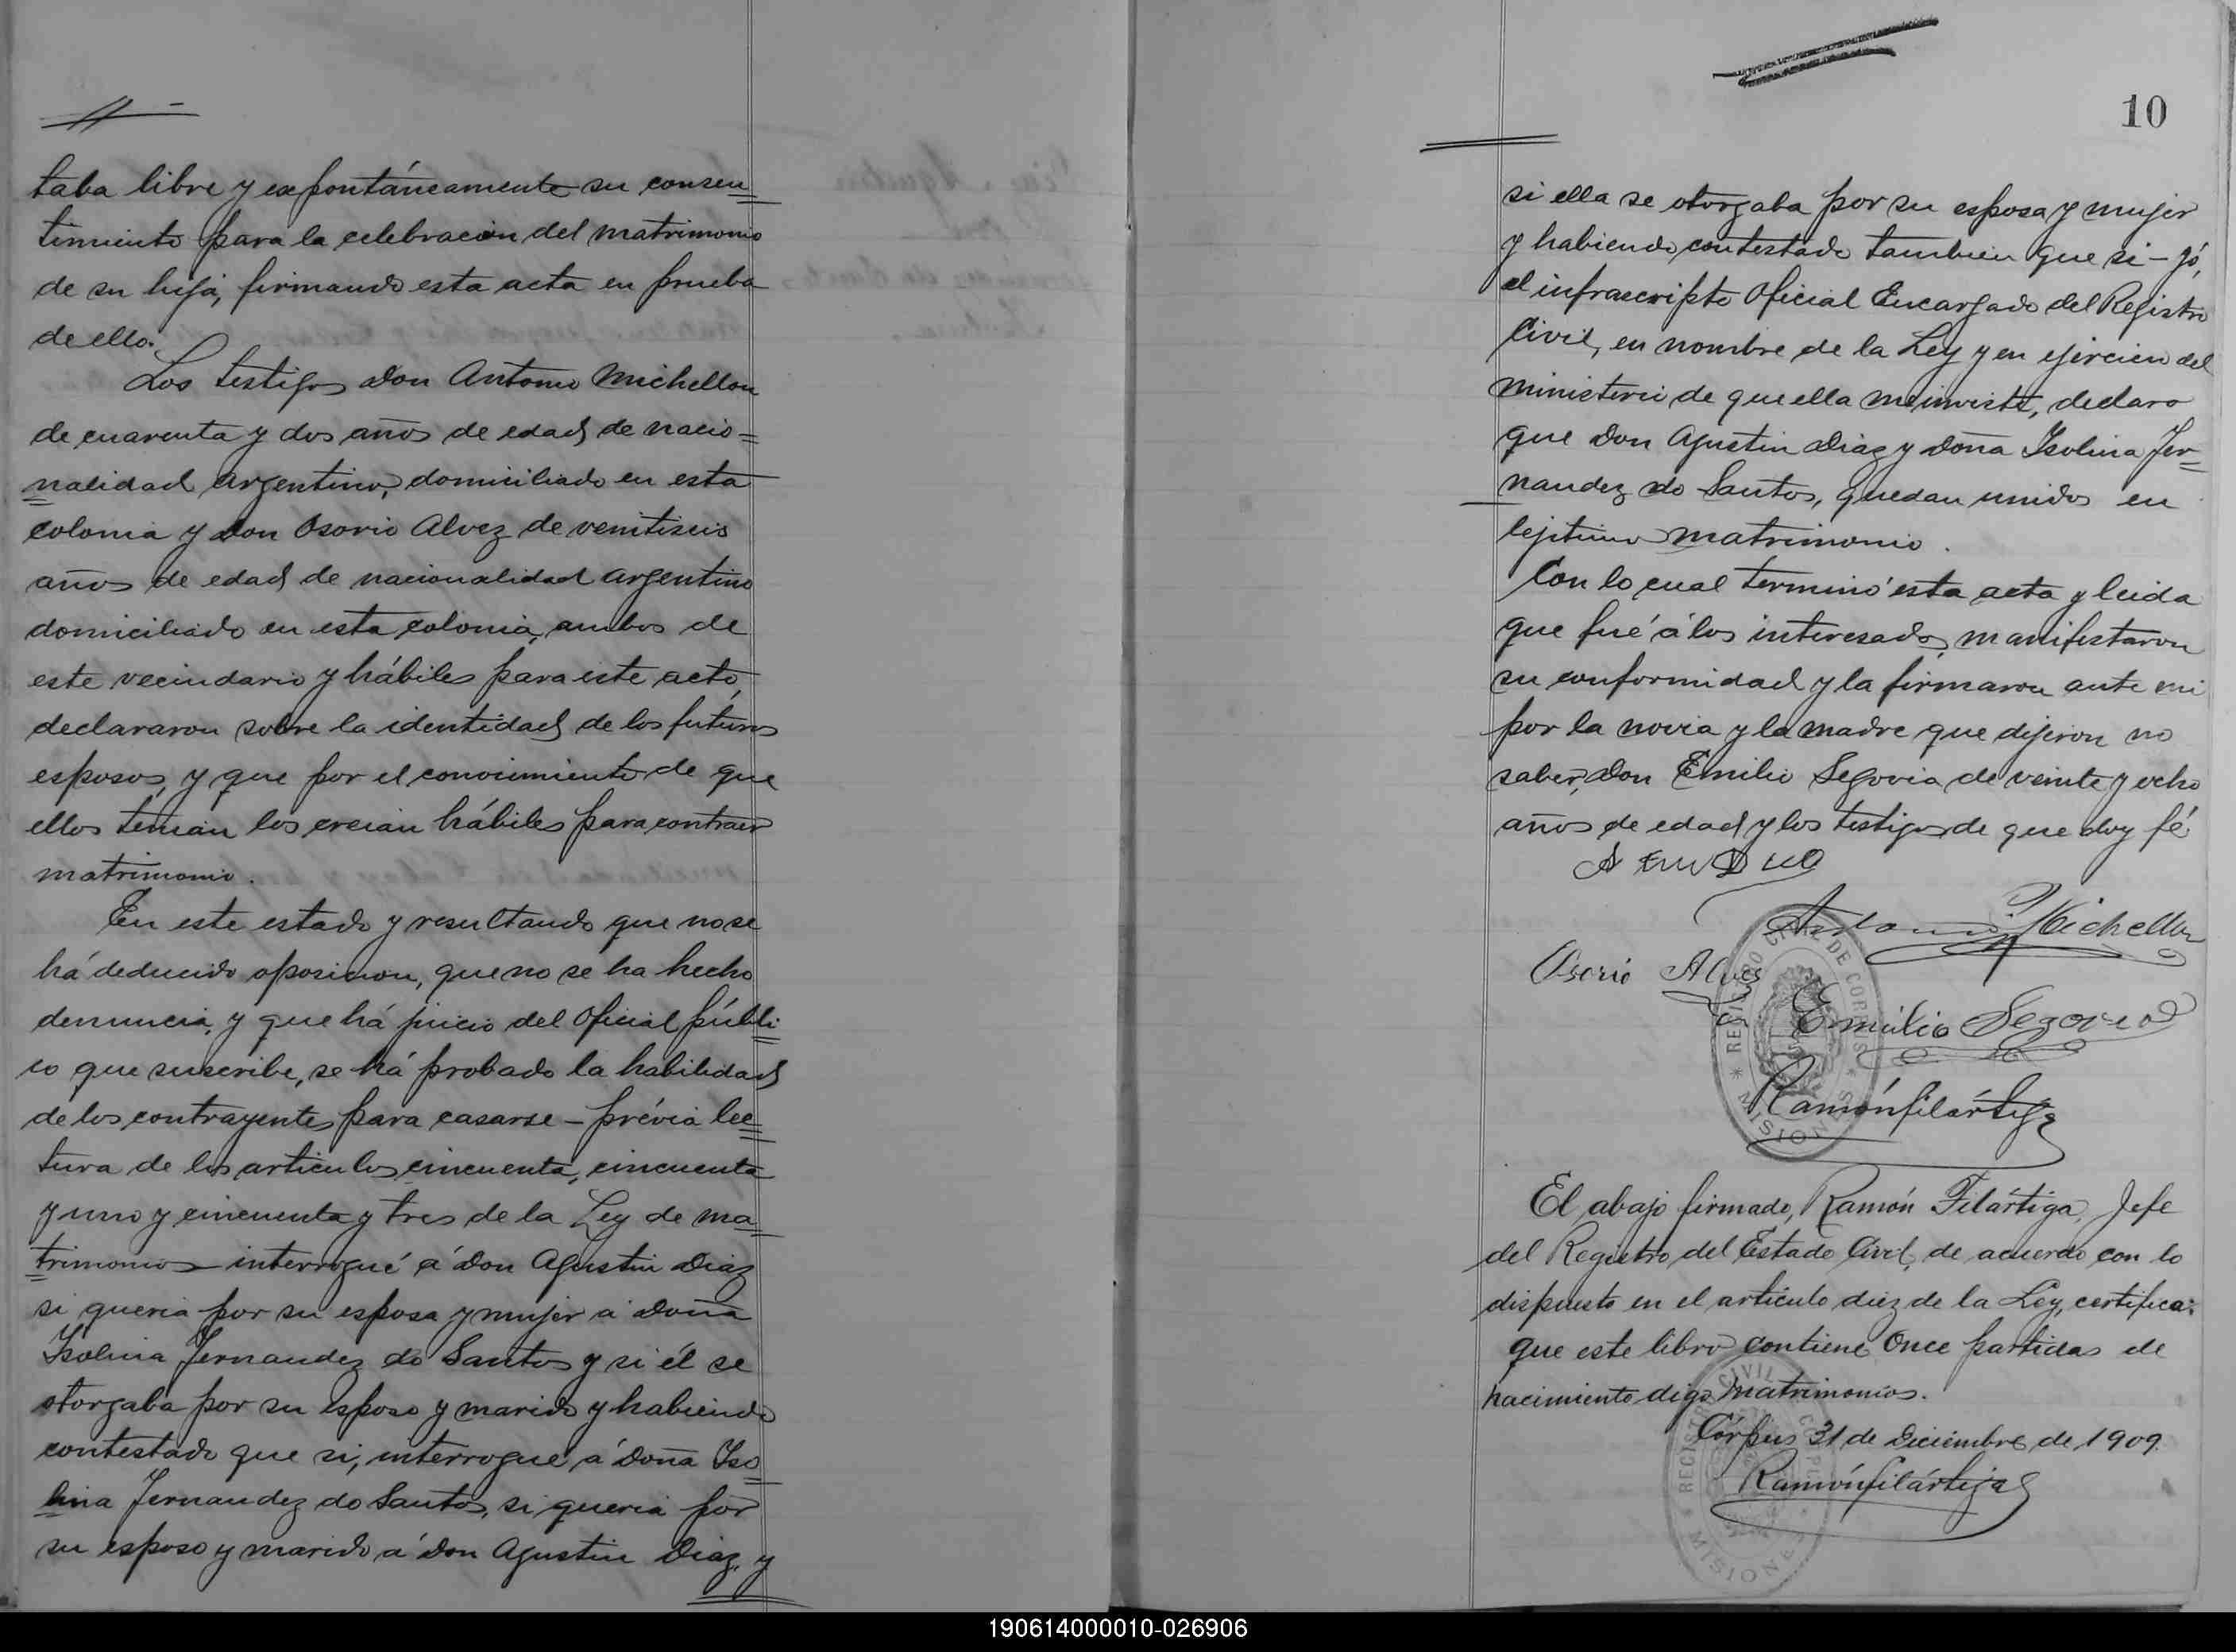 taba libre y expontáneamente su consen=
timiento para la celebracion del matrimonio
de su hija, firmando esta acta en prueba
de ello.
Los testigos Don Antonio Michellon
de cuarenta y dos años de edad de nacio=
nalidad argentino, domiciliado en esta
colonia y Don Osorio Alvez de venitiseis
años de edad de nacionalidad argentino
domiciliado en esta colonia, ambos de
este vecindario y hábiles para este acto,
declararon sobre la identidad de los futuros
esposos, y que por el conocimiento de que
ellos tenian los creian hábiles para contraer
matrimonio.
En este estado y resultando que no se
há deducido oposicion, que no se ha hecho
denuncia, y que há juicio del Oficial públi=
co que suscribe, se há probado la habilidad
de los contrayentes para casarse - prévia lec=
tura de los articulos cincuenta, cincuenta
y uno y cincuenta y tres de la Ley de ma=
trimonio - interrogué á Don Agustin Diaz
si queria por su esposa y mujer a Doña
Isolina Fernandez do Santos y si él se
otorgaba por su esposo y marido y habiendo
contestado que si, interrogué á Doña Iso=
lina Fernandez do Santos, si queria por
su esposo y marido á Don Agustin Diaz, y
10
si ella se otorgaba por su esposa y mujer
y habiendo contestado tambien que si - Yó,
el infrascripto Oficial Encargado del Registro
Civil, en nombre de la Ley y en ejercicio del
ministerio de que ella me inviste, declaro
que Don Agustin Diaz y Doña Isolina Fer=
nandez do Santos, quedan unidos en
lejitimo matrimonio.
Con lo cual terminó esta acta y leida
que fué á los interesados, manifestaron
su conformidad y la firmaron ante mi
por la novia y la madre que dijeron no
saber, Don Emilio Segovia de veinte y ocho
años de edad y los testigos de que doy fé
Antonio Michellon
Osorio Alves
Emilio Segovia
Ramón Filártiga
REGISTRO CIVIL DE CORPUS * MISIONES *
El abajo firmado, Ramón Filártiga, Jefe
del Registro del Estado Civil, de acuerdo con lo
dispuesto en el artículo diez de la Ley, certifica:
que este libro contiene Once partidas de
nacimiento digo matrimonios.
Córpus 31 de Diciembre de 1909.
Ramón Filártiga
REGISTRO CIVIL DE CORPUS * MISIONES
190614000010-026906